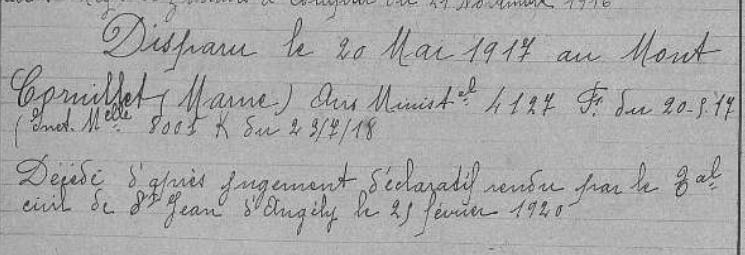 21 Novembre 1916
Disparu le 20 Mai 1917 au Mont
Cornillet (Marne) Avis Minist.el 4127 F. du 20-9-17
(Inst. Melle 8005 K du 23/7/18
Décédé d'après jugement déclaratif rendu par le Bal
civil de St Jean d'Angély le 25 février 1920